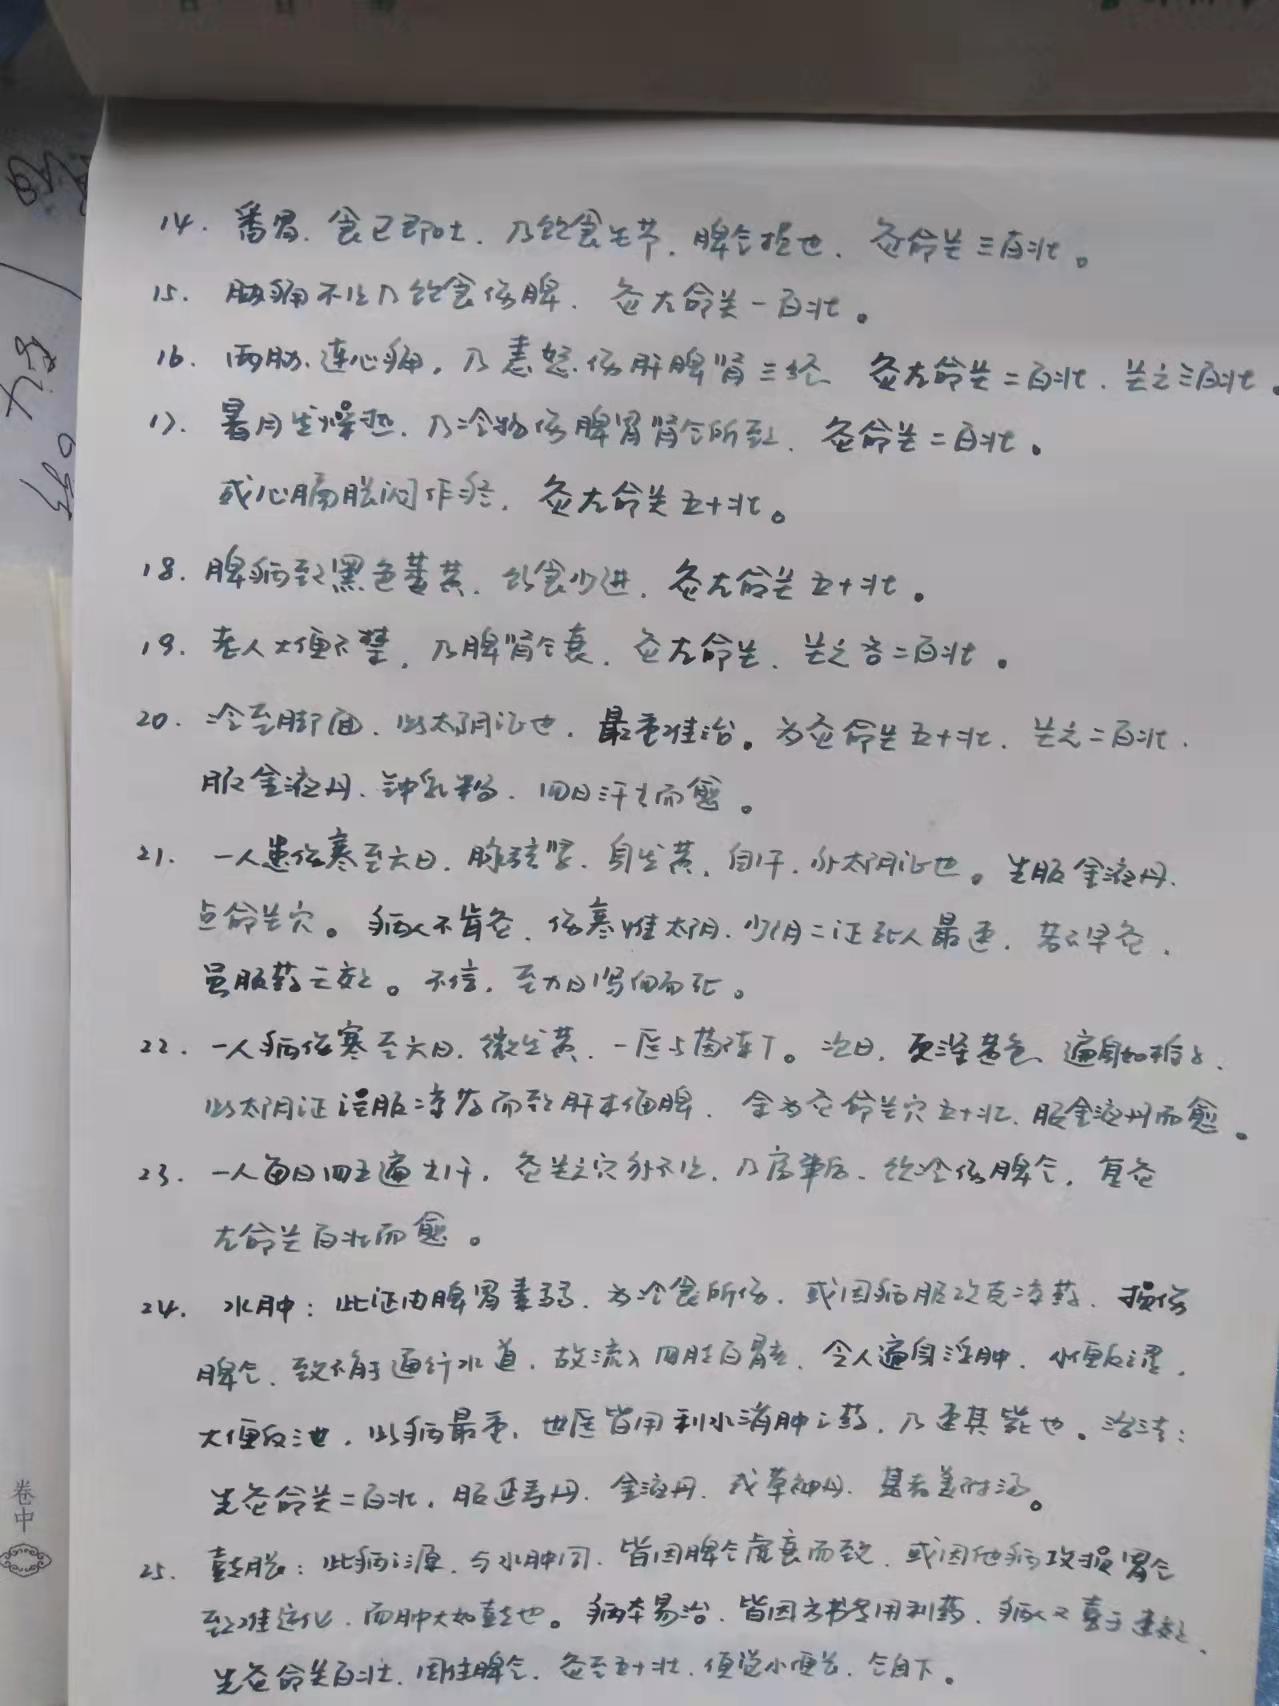 14. 番胃、食已即吐，乃饮食失节，脾气损也，灸命关三百壮。
15. 胁痛不止乃饮食伤脾，灸左命关一百壮。
16. 两胁连心痛，乃恚怒伤肝脾肾三经 灸左命关二百壮、关元三百壮。
17. 暑月发燥热，乃冷物伤脾胃肾气所致，灸命关二百壮。
或心膈胀闷作疼，灸左命关五十壮。
18. 脾病致黑色萎黄，饮食少进，灸左命关五十壮。
19. 老人大便不禁，乃脾肾气衰，灸左命关、关元各二百壮。
20. 冷至脚面，此太阴证也，最重难治。为灸命关五十壮、关元二百壮，
服金液丹、钟乳粉，四日汗出而愈。
21. 一人患伤寒至六日，脉弦紧，身发黄，自汗，亦太阴证也。先服金液丹，
点命关穴。病人不肯灸，伤寒惟太阴、少阴二证死人最速，若不早灸，
虽服药无效。不信，至九日泻血而死。
22. 一人病伤寒至六日，微发黄，一医与茵陈T。次日，更深黄色，遍身如栀子，
此太阴证误服凉药而致肝木侮脾，余为灸命关穴五十壮，服金液丹而愈。
23. 一人每日四五遍出汗，灸关元穴亦不止，乃房事后，饮冷伤脾气，复灸
左命关百壮而愈。
24. 水肿：此证由脾胃素弱，为冷食所伤，或因病服攻克凉药，损伤
脾气，致不能通行水道，故流入四肢百骸，令人遍身浮肿，小便反涩，
大便反泄，此病最重，世医皆用利水消肿之药，乃速其毙也。治法：
先灸命关二百壮，服延寿丹、金液丹，或草神丹，甚者姜附汤。
25. 鼓胀：此病之源，与水肿同，皆因脾气虚衰而致，或因他病攻损胃气
致难运化，而肿大如鼓也。病本易治，皆因方书多用利药，病人又喜于速效，
先灸命关百壮，固住脾气，灸至五十壮，便觉小便长，气自下。
卷中